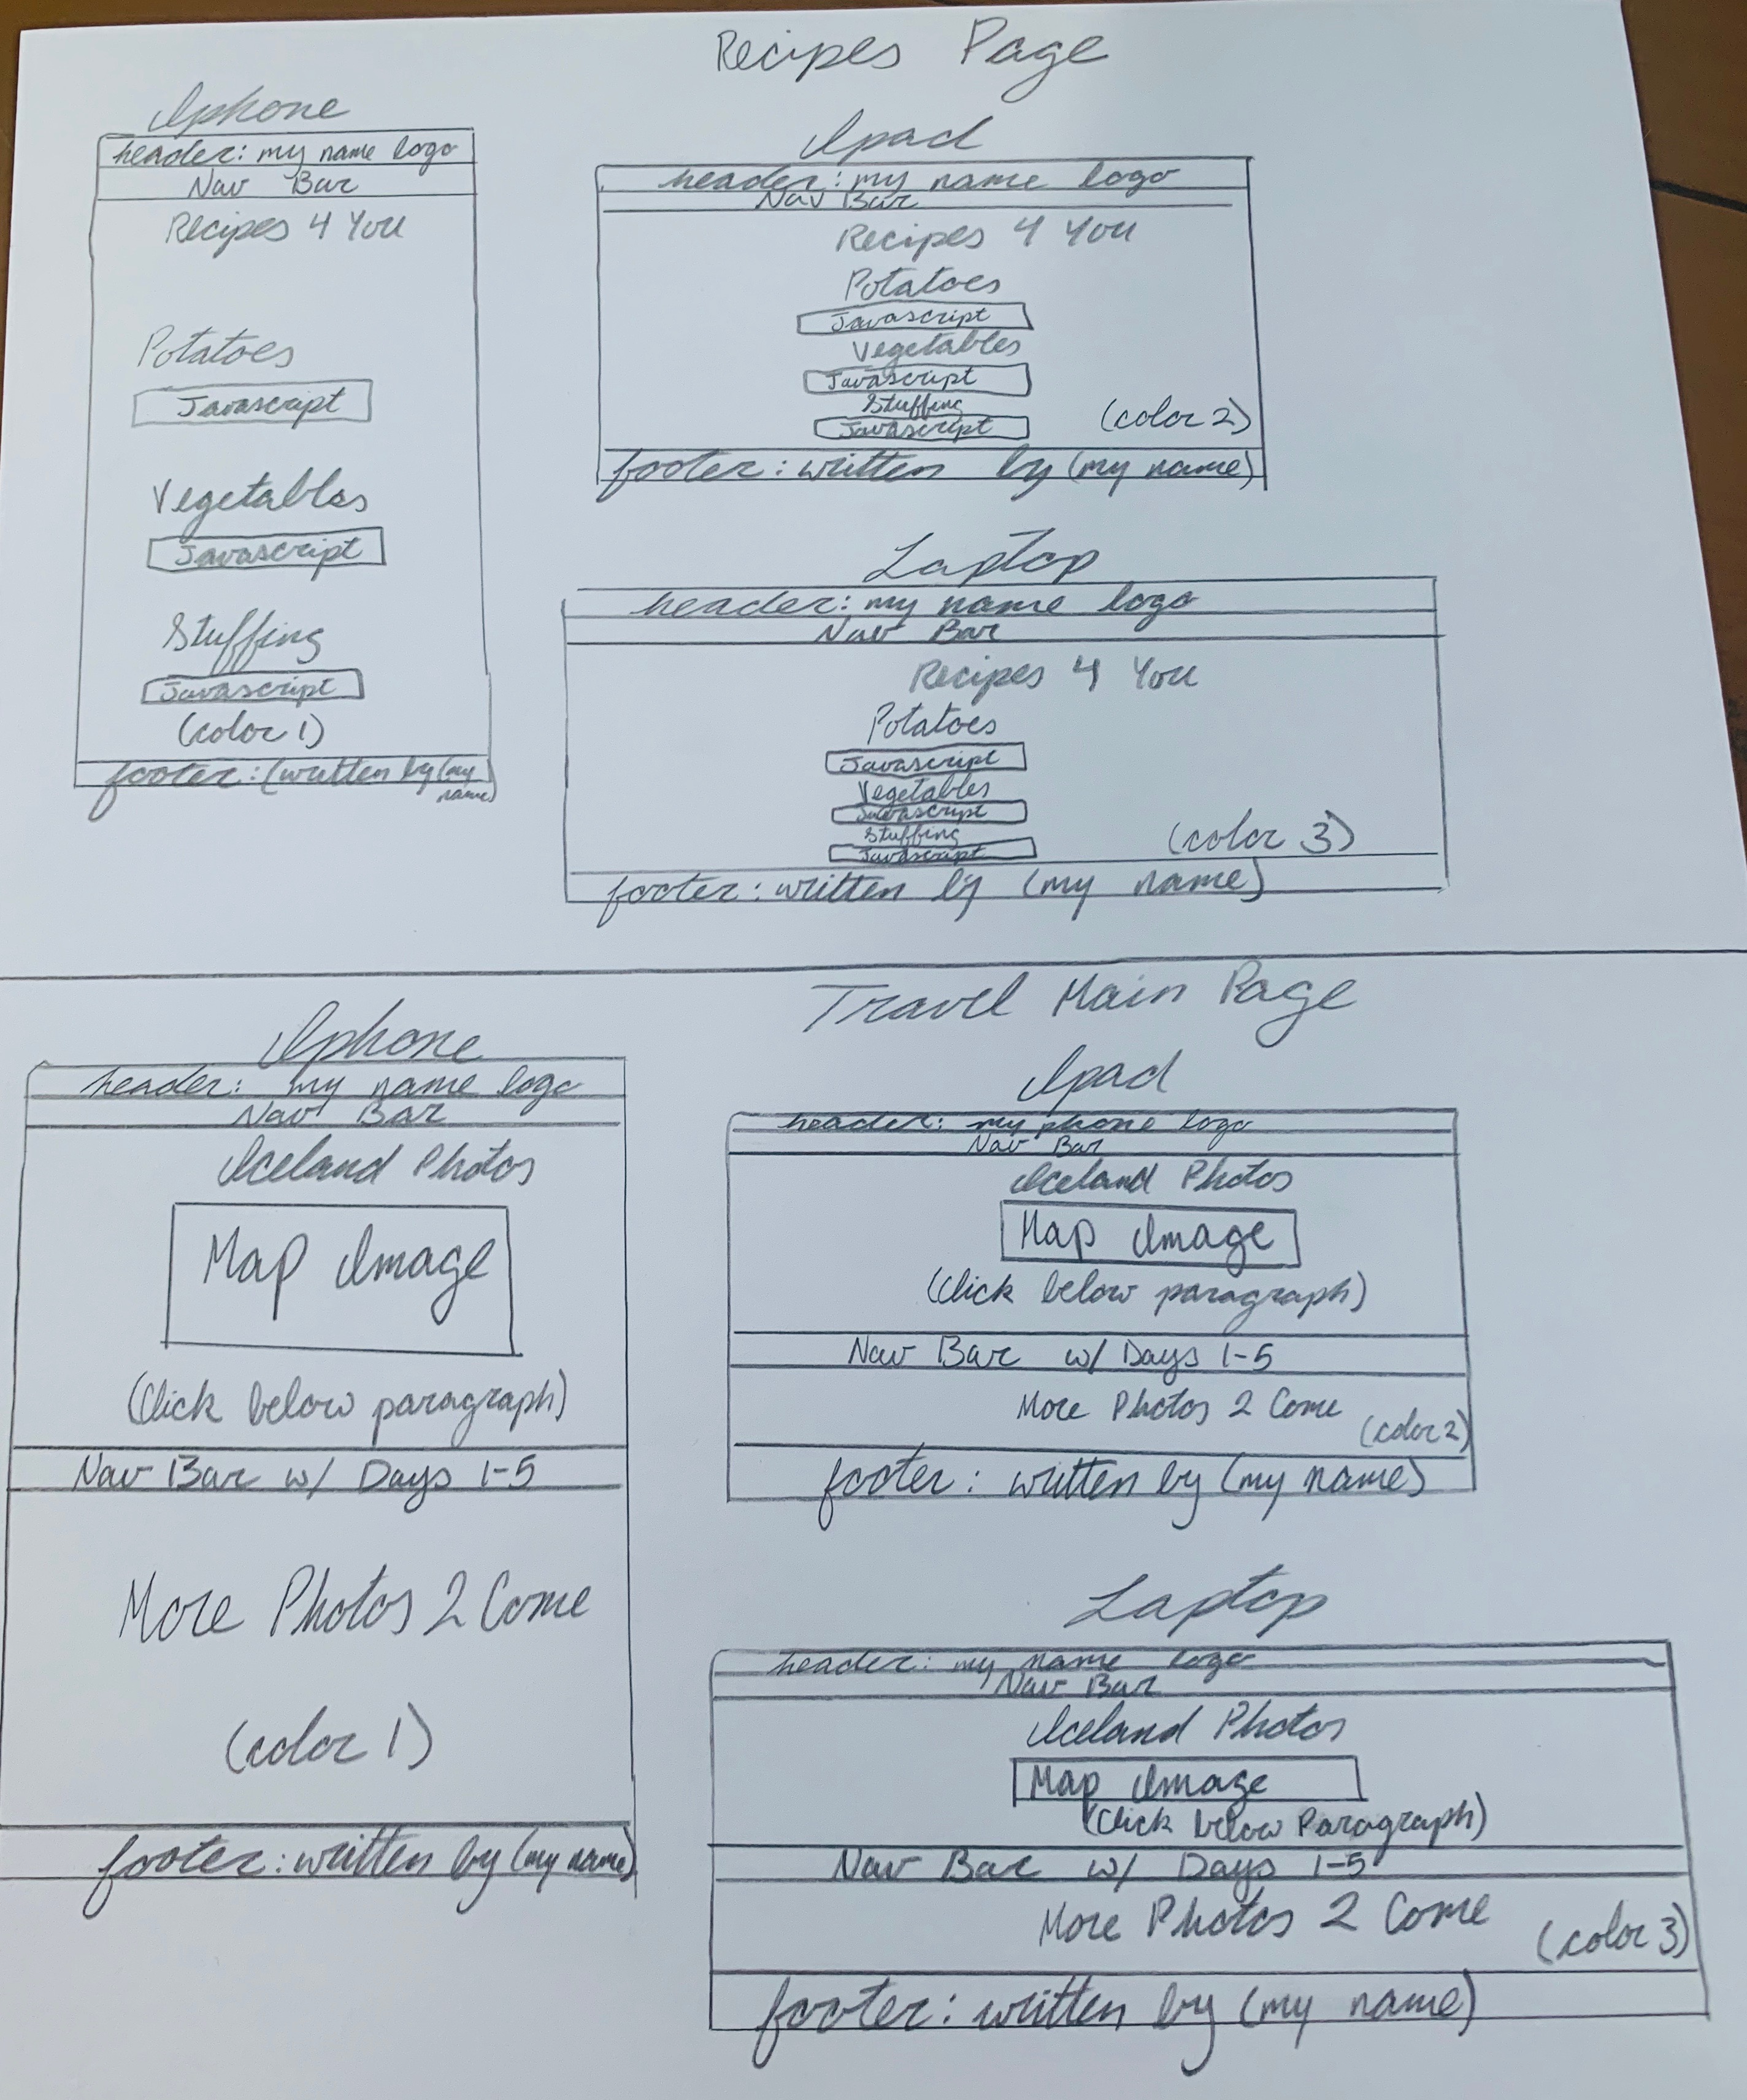 Recipes Page
Iphone
header: my name logo
Nav Bar
Recipes 4 You
Potatoes
Javascript
Vegetables
Javascript
Stuffing
Javascript
(color 1)
footer: (written by (my
name)
Ipad
header: my name logo
Nav Bar
Recipes 4 You
Potatoes
Javascript
Vegetables
Javascript
Stuffing
Javascript
(color 2)
footer: written by (my name)
Laptop
header: my name logo
Nav Bar
Recipes 4 You
Potatoes
Javascript
Vegetables
Javascript
Stuffing
Javascript
(color 3)
footer: written by (my name)
Travel Main Page
Iphone
header: my name logo
Nav Bar
Iceland Photos
Map Image
(Click below paragraph)
Nav Bar w/ Days 1-5
More Photos 2 Come
(color 1)
footer: written by (my name)
Ipad
header: my phone logo
Nav Bar
Iceland Photos
Map Image
(Click below paragraph)
Nav Bar w/ Days 1-5
More Photos 2 Come
(color 2)
footer: written by (my name)
Laptop
header: my name logo
Nav Bar
Iceland Photos
Map Image
(Click below Paragraph)
Nav Bar w/ Days 1-5
More Photos 2 Come
(color 3)
footer: written by (my name)